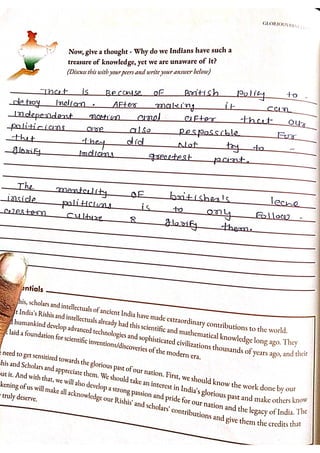 GLORIOUS
Now, give a thought - Why do we Indians have such a
treasure of knowledge, yet we are unaware of it?
(Discuss this with your peers and write your answer below)
That is Because of British Policy to -
detroy Indian. After making it can
Independent nation and after that our
politicians are also Respossible For
that they did Not try to -
Glorify Indians greetest part.
The mentality OF british's leene
inside politicians is to only Follow -
western culture & Glorify them.
entials
his, scholars and intellectuals of ancient India have made extraordinary contributions to the world.
India's Rishis and intellectuals already had this scientific and mathematical knowledge long ago. They
humankind develop advanced technologies and sophisticated civilizations thousands of years ago, and their
laid a foundation for scientific inventions/discoveries of the modern era.
need to get sensitized towards the glorious past of our nation. First, we should know the work done by our
his and Scholars and appreciate them. We should take an interest in India's glorious past and make others know
out it. And with that, we will also develop a strong passion and pride for our nation and the legacy of India. The
kening of us will make all acknowledge our Rishis' and scholars' contributions and give them the credits that
truly deserve.